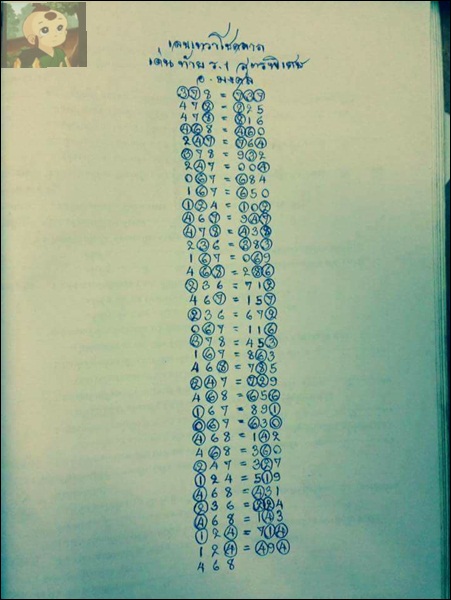 เด่นท้าย ร.1 สูตรพิเศษ
อ. มงคล
378 = 739
478 = 225
478 = 816
468 = 460
247 = 764
378 = 932
247 = 004
067 = 684
167 = 650
124 = 102
467 = 947
478 = 438
236 = 883
167 = 069
468 = 286
236 = 712
467 = 157
236 = 672
067 = 116
378 = 453
167 = 863
468 = 785
247 = 729
468 = 656
167 = 891
067 = 630
468 = 142
468 = 360
247 = 327
124 = 519
468 = 431
236 = 224
468 = 143
124 = 714
124 = 494
468